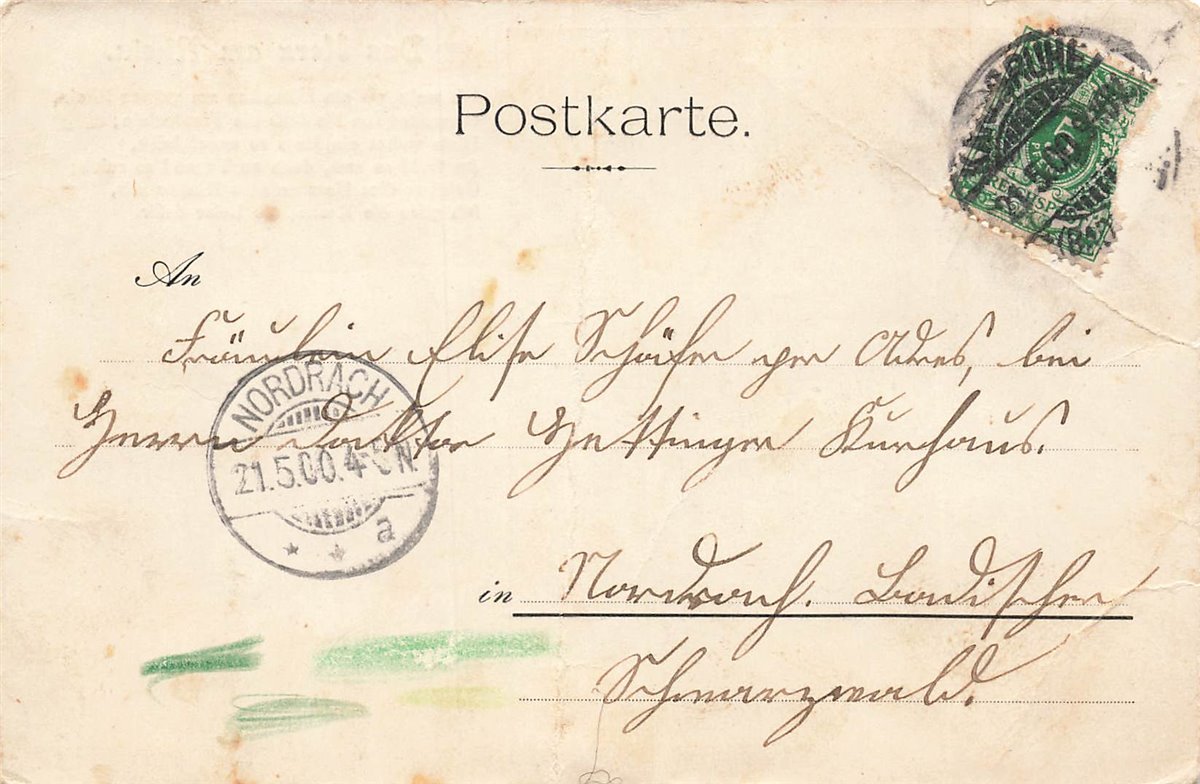 Postkarte.
KARLSRUHE
21.5.00
(BAD
5
An
Fräulein Elise Schäfer per Adres, bei
Herrn Doktor Hettinger Kurhaus.
NORDRACH
21.5.00.4-5N
a
in Nordrach. Badischer
Schwarzwald.